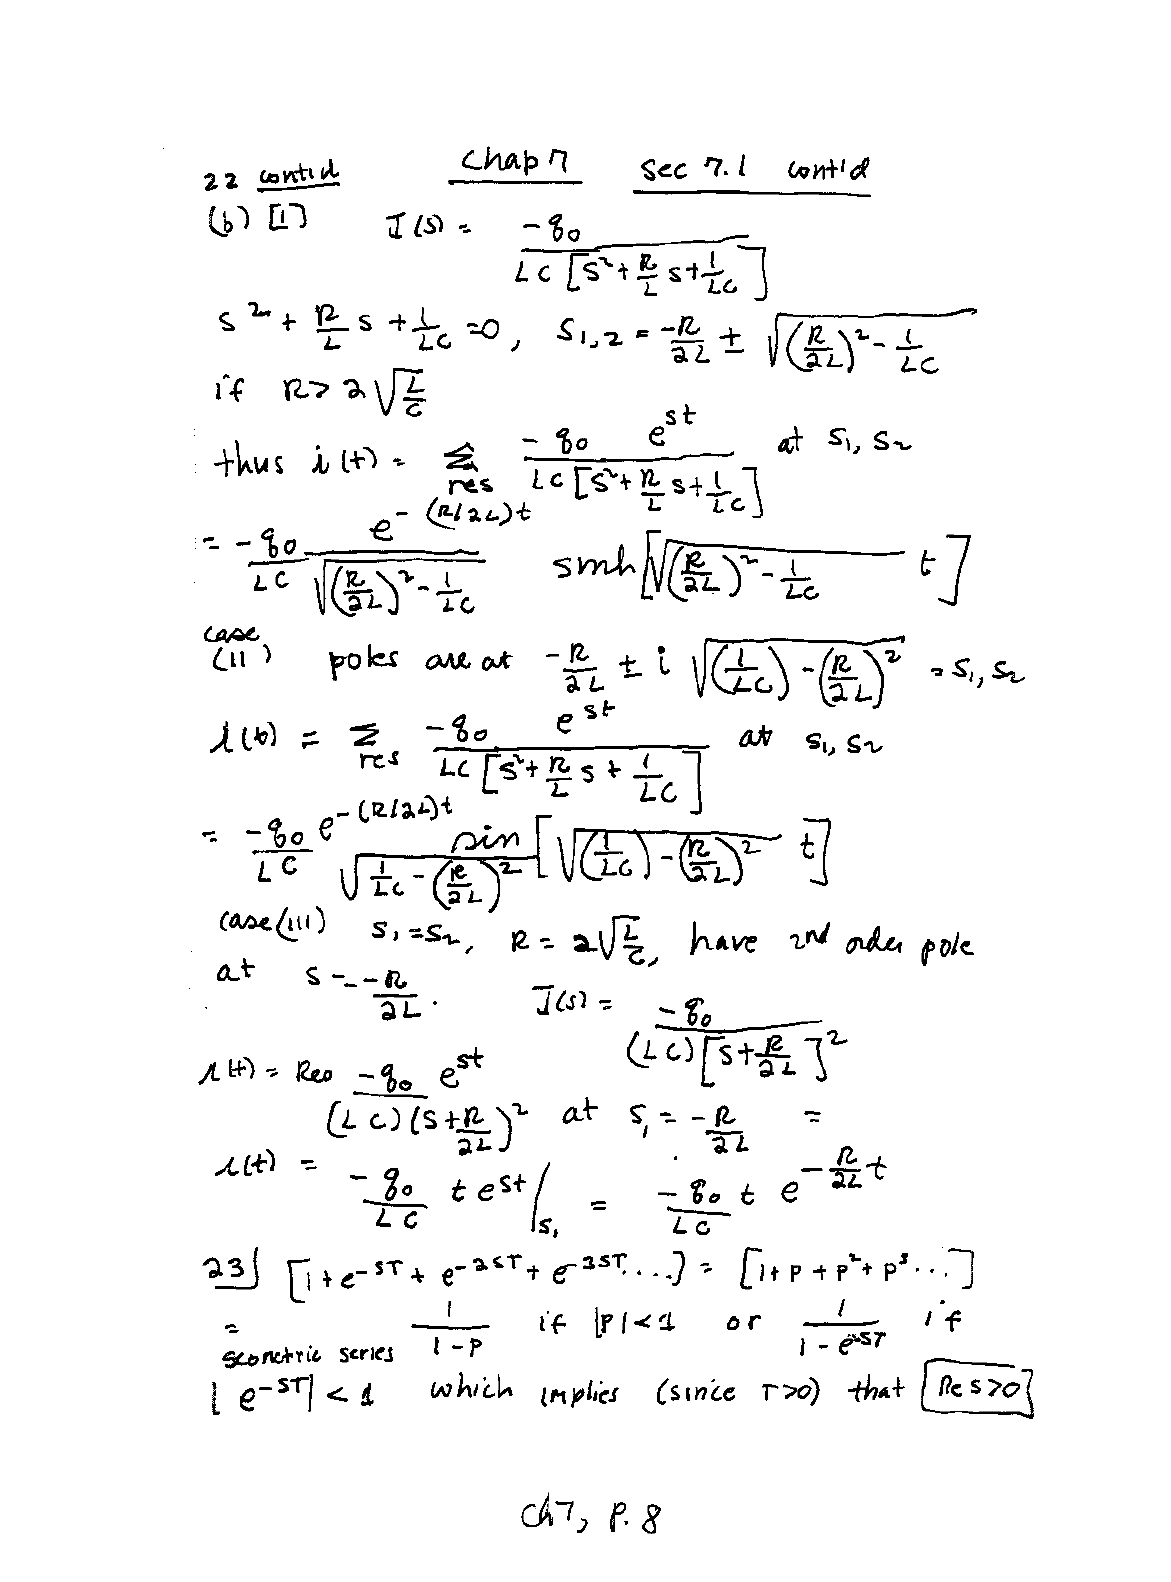 22 cont'd Chap 7 Sec 7.1 cont'd
(b) [i] I(s) = -q₀ / (LC [s² + R/L s + 1/LC])
s² + R/L s + 1/LC = 0, s₁,₂ = -R/2L ± √((R/2L)² - 1/LC)
if R > 2√(L/C)
thus i(t) = Σ res -q₀ e^st / (LC [s² + R/L s + 1/LC]) at s₁, s₂
= -q₀/LC e^-(R/2L)t / √((R/2L)² - 1/LC) sinh[√((R/2L)² - 1/LC) t]
case (ii) poles are at -R/2L ± i √((1/LC) - (R/2L)²) = s₁, s₂
i(t) = Σ res -q₀ e^st / (LC [s² + R/L s + 1/LC]) at s₁, s₂
= -q₀/LC e^-(R/2L)t / √(1/LC - (R/2L)²) sin[√((1/LC) - (R/2L)²) t]
case (iii) s₁ = s₂, R = 2√(L/C), have 2nd order pole
at s = -R/2L. I(s) = -q₀ / ((LC)[s + R/2L]²)
i(t) = Res -q₀ e^st / ((LC)(s + R/2L)²) at s₁ = -R/2L =
i(t) = -q₀/LC t e^st |s₁ = -q₀/LC t e^-(R/2L)t
23] [1 + e^-sT + e^-2sT + e^-3sT ...] = [1 + p + p² + p³ ...]
= geometric series 1/(1-p) if |p| < 1 or 1/(1 - e^-sT) if
|e^-sT| < 1 which implies (since T>0) that Re s>0
Ch7, p. 8